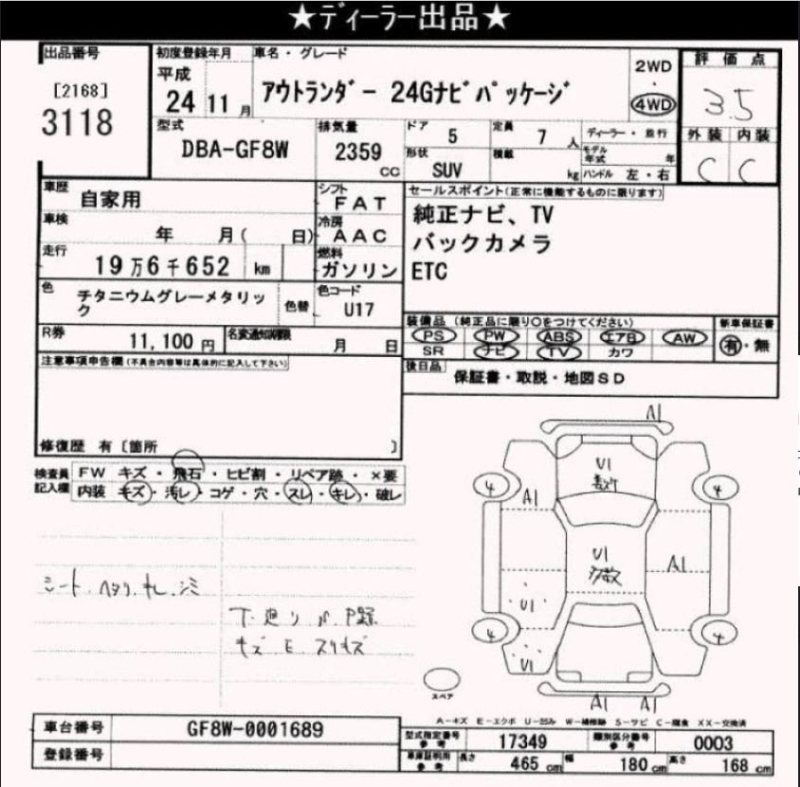 ★ディーラー出品★
出品番号
[2168]
3118
初度登録年月
平成
24 11 月
車名・グレード
アウトランダー 24Gナビパッケージ
2WD
4WD
評価点
3.5
外装 内装
C C
型式
DBA-GF8W
排気量
2359
CC
ドア
5
定員
7 人
形状
SUV
積載
kg
ディーラー・並行
モデル年式 年
ハンドル 左・右
車歴
自家用
車検
年 月( 日)
走行
19万6千652 km
色
チタニウムグレーメタリック
色替
シフト
FAT
冷房
AAC
燃料
ガソリン
色コード
U17
セールスポイント(正常に機能するものに限ります)
純正ナビ、TV
バックカメラ
ETC
R券
11,100 円
名変通知期限
月 日
装備品 (純正品に限り〇をつけてください)
PS PW ABS エアB AW
SR ナビ TV カワ
新車保証書
有・無
後日品
保証書・取説・地図SD
注意事項申告欄(不具合内容等は具体的に記入して下さい)
修復歴 有〔箇所 〕
検査員記入欄
FW キズ・飛石・ヒビ割・リペア跡・×要
内装 キズ・汚レ・コゲ・穴・スレ・キレ・破レ
シート・ヘタリ・キレ・シミ
キズ E スリキズ
A1
U1
4
A1
4
U1
A1
U1
4
U1
4
A1 A1
スペア
A-キズ E-エクボ U-凹み W-補修跡 S-サビ C-腐食 XX-交換済
車台番号
GF8W-0001689
登録番号
型式指定番号
参考
17349
類別区分番号
参考
0003
車庫証明用
参考
長さ 465 cm
幅 180 cm
高さ 168 cm